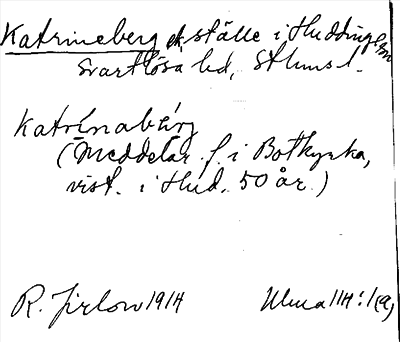 Katrineberg ställe i Huddinge sn
Svartlösa hd, Sthms l.
Katrinabärg
(Meddelar. f. i Botkyrka,
vist. i Hud. 50 år.)
R. Jirlow 1914 Ulma 114:1(a)